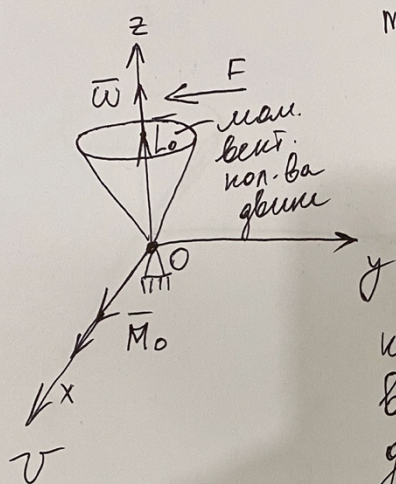 м
z
ω̅
F
L₀
мом.
вект.
кол.ва
движ
O
y
M̅₀
x
к
в
д
v